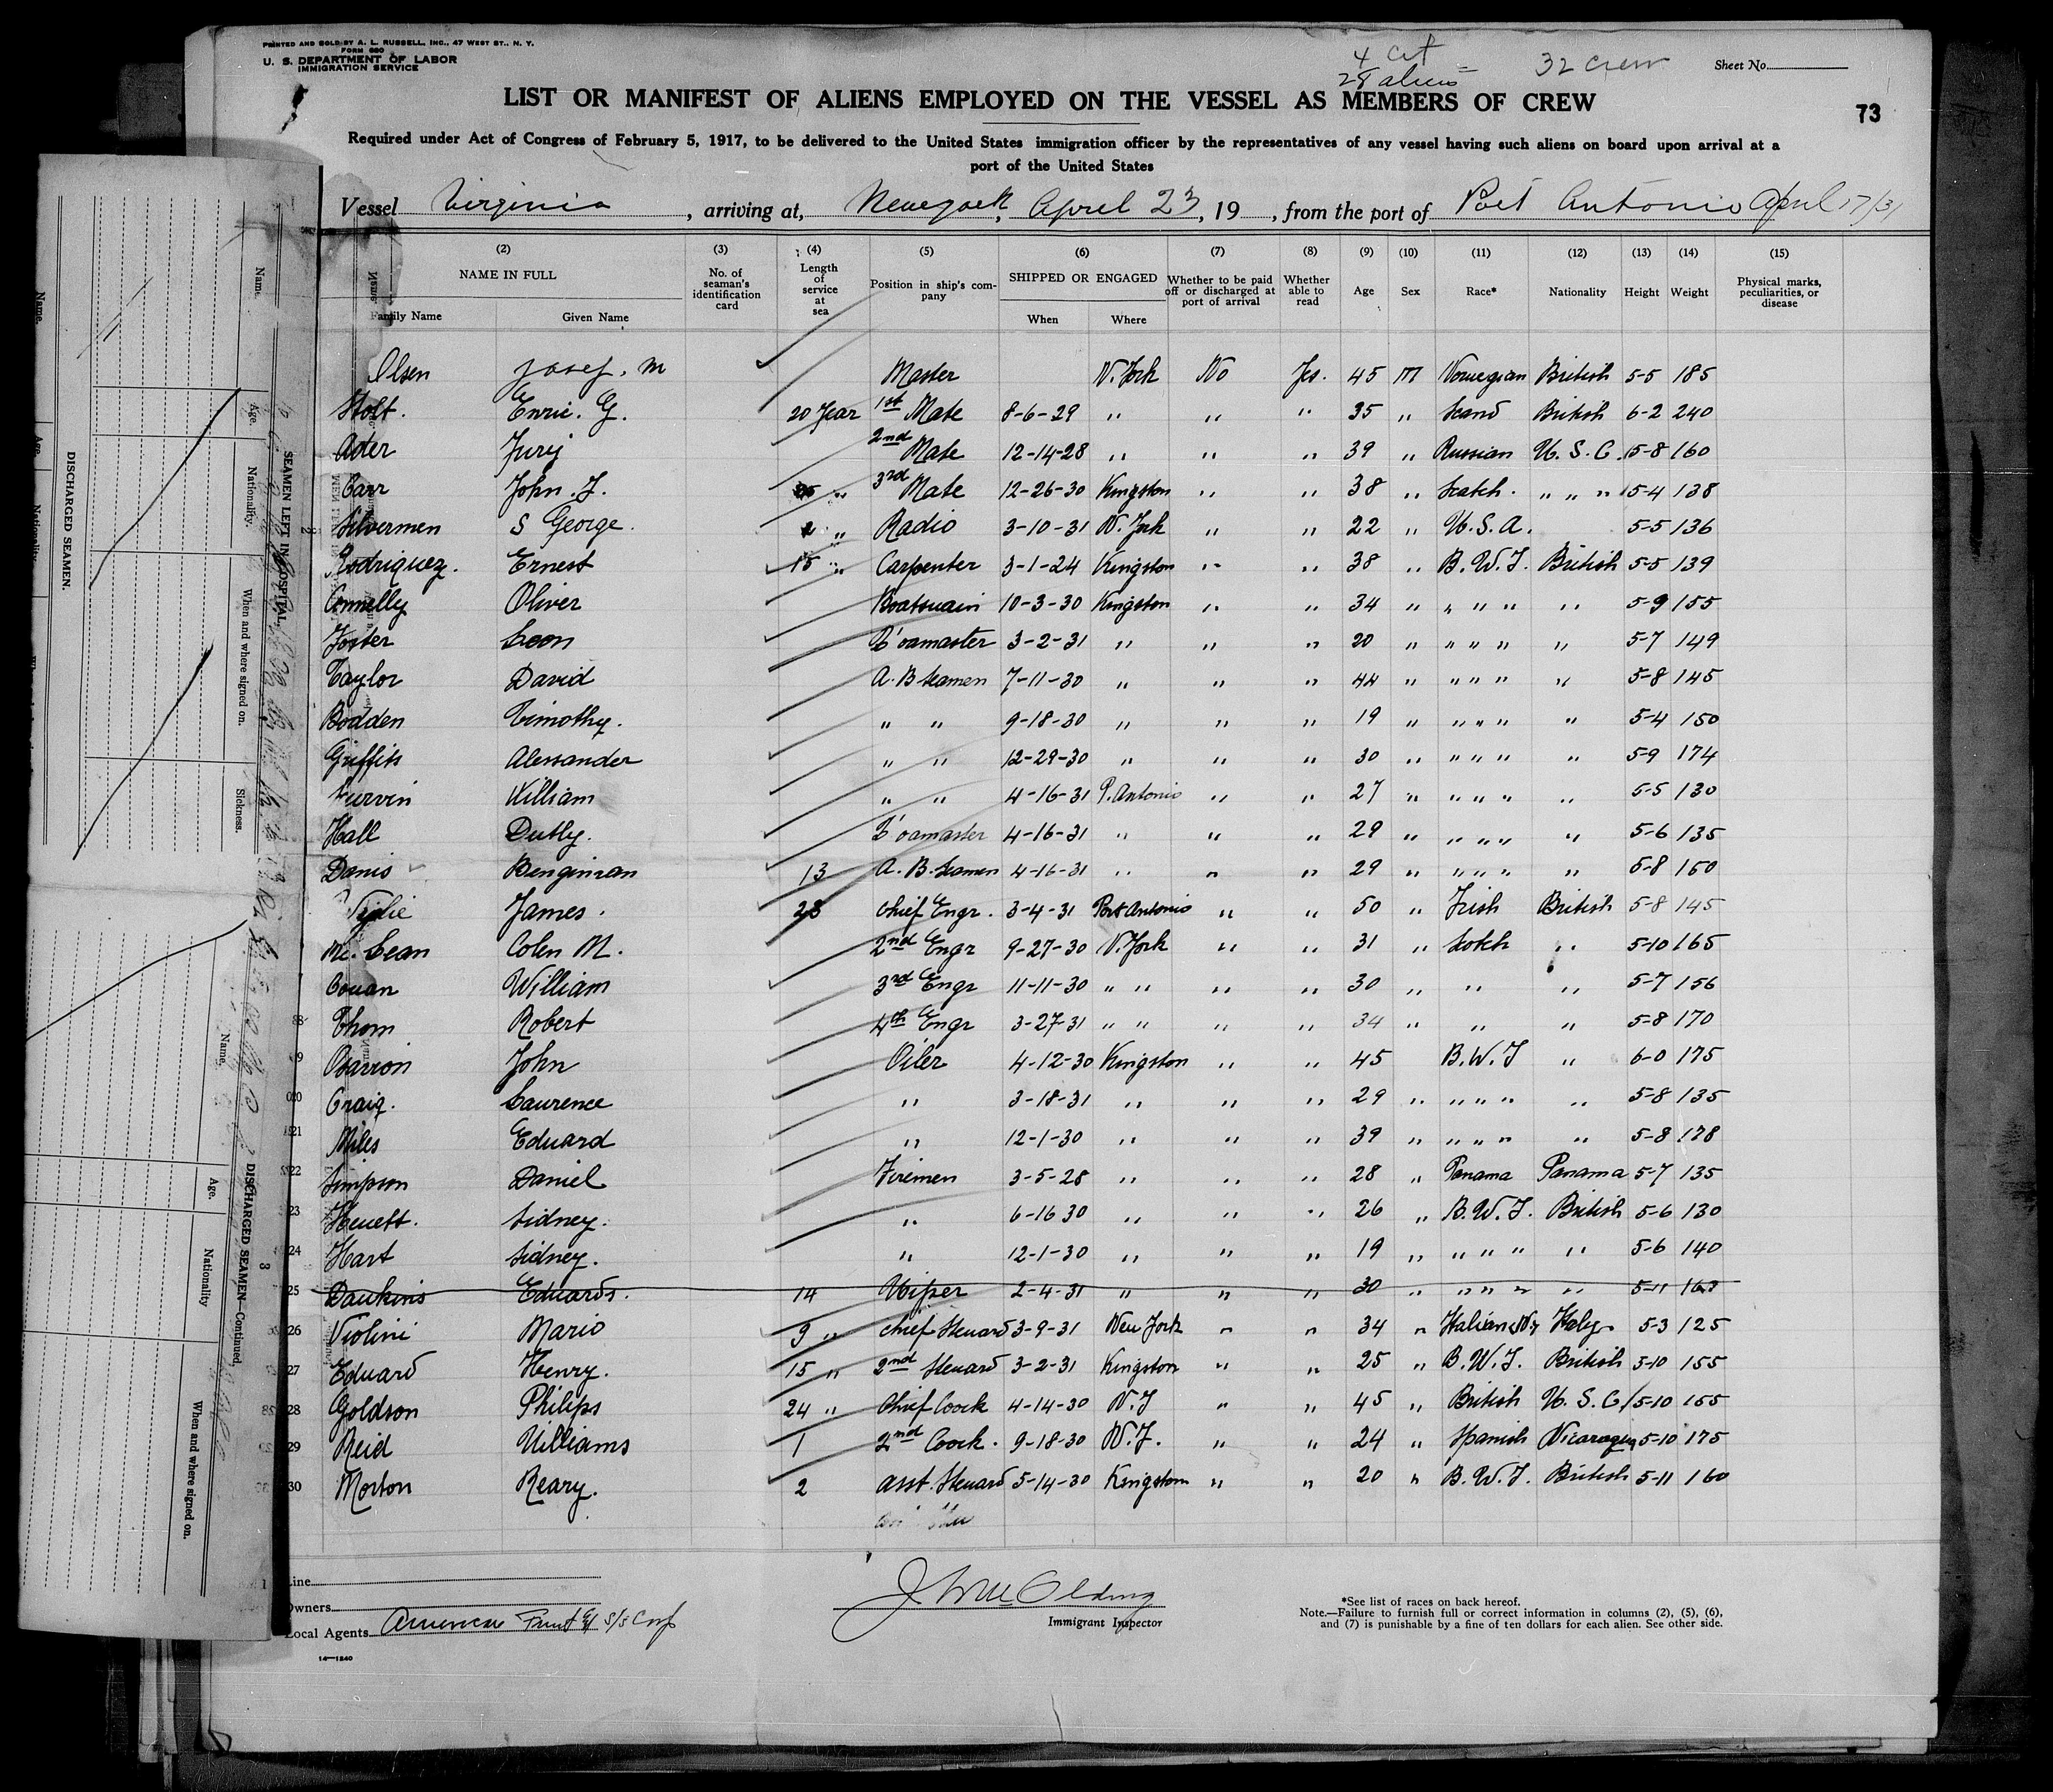 PRINTED AND SOLD BY A. L. RUSSELL, INC., 47 WEST ST., N. Y.
FORM 680
U. S. DEPARTMENT OF LABOR
IMMIGRATION SERVICE
4 cit
28 aliens
32 crew
Sheet No.
LIST OR MANIFEST OF ALIENS EMPLOYED ON THE VESSEL AS MEMBERS OF CREW
73
Required under Act of Congress of February 5, 1917, to be delivered to the United States immigration officer by the representatives of any vessel having such aliens on board upon arrival at a
port of the United States
Vessel Virginia, arriving at, New york, April 23, 19, from the port of Port Antonio April 17/31
(2) (3) (4) (5) (6) (7) (8) (9) (10) (11) (12) (13) (14) (15)
NAME IN FULL
Family Name Given Name
No. of seaman's identification card
Length of service at sea
Position in ship's company
SHIPPED OR ENGAGED
When Where
Whether to be paid off or discharged at port of arrival
Whether able to read
Age Sex Race* Nationality Height Weight
Physical marks, peculiarities, or disease
Olsen Josef. M Master N. York No Yes. 45 M Norwegian British 5-5 185
Holt. Enric. G. 20 Year 1st Mate 8-6-29 " " " 35 " Scand British 6-2 240
Ader Jurij 2nd Mate 12-14-28 " " " 39 " Russian U. S. C. 5-8 160
Carr John. J. " 3rd Mate 12-26-30 Kingston " " 38 " Scotch. " " " 5-4 138
Silvermen S George. " Radio 3-10-31 N. York " " 22 " U. S. A. 5-5 136
Rodriquez. Ernest 15 " Carpenter 3-1-24 Kingston " " 38 " B. W. I. British 5-5 139
Connelly Oliver Boatswain 10-3-30 Kingston " " 34 " " " " " 5-9 155
Foster Leon 3-2-31 " " " 20 " " " " " 5-7 149
Taylor David A. B Seamen 7-11-30 " " " 44 " " " " " 5-8 145
Bodden Timothy. " " 9-18-30 " " " 19 " " " " " 5-4 150
Griffits Alessander " " 12-29-30 " " " 30 " " " " " 5-9 174
William " " 4-16-31 P. Antonio " " 27 " " " " " 5-5 130
Hall Dutly. 4-16-31 " " " 29 " " " " " 5-6 135
Danis Benginran 13 A. B. Seamen 4-16-31 " " " 29 " " " " " 5-8 150
James. 28 Chief Engr. 3-4-31 Port Antonio " " 50 " Irish British 5-8 145
Mc. Lean Colen M. 2nd Engr 9-27-30 N. York " " 31 " Scotch " 5-10 165
Couan William 3rd Engr 11-11-30 " " " " 30 " " " 5-7 156
Thom Robert 4th Engr 3-27-31 " " " " 34 " " " 5-8 170
John Oiler 4-12-30 Kingston " " 45 B. W. I " 6-0 175
Craig. Laurence " 3-18-31 " " " 29 " " " " " 5-8 135
Miles Eduard " 12-1-30 " " " 39 " " " " " 5-8 178
22 Simpson Daniel Firemen 3-5-28 " " " 28 " Panama Panama 5-7 135
23 Heuett. Sidney. " 6-16 30 " " " 26 " B. W. I. British 5-6 130
24 Hart Sidney. " 12-1-30 " " " 19 " " " " " 5-6 140
25 Daukins Eduards. 14 Wiper 2-4-31 " " " 30 " " " " " 5-11 163
26 Violini Mario 9 " Chief Steuard 3-9-31 New York " " 34 " Italian Italy 5-3 125
27 Eduard Henry. 15 " 2nd Steuard 3-2-31 Kingston " " 25 " B. W. I. British 5-10 155
28 Goldson Philips 24 " Chief Coock 4-14-30 N. Y " " 45 " British U. S. C 5-10 155
29 Reid Uilliams 1 2nd Coock. 9-18-30 N. Y. " " 24 " Spanish Nicaragua 5-10 175
30 Morton Reary. 2 Asst. Steuard 5-14-30 Kingston " " 20 " B. W. I. British 5-11 160
Line
Owners
Local Agents American Fruit & S/S Corp
Immigrant Inspector
*See list of races on back hereof.
Note.—Failure to furnish full or correct information in columns (2), (5), (6),
and (7) is punishable by a fine of ten dollars for each alien. See other side.
14—1240
DISCHARGED SEAMEN.
Name. Age. Nationality.
SEAMEN LEFT IN HOSPITAL.
Name. Age. Nationality. When and where signed on. Sickness.
DISCHARGED SEAMEN—Continued.
Name. Age. Nationality When and where signed on.